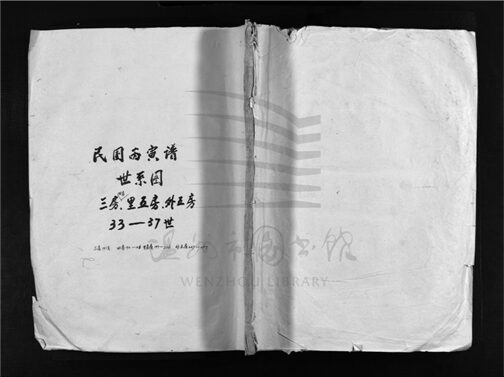 民国丙寅谱
世系图
三房、里五房、外五房
33—37世
温州市图书馆
WENZHOU LIBRARY